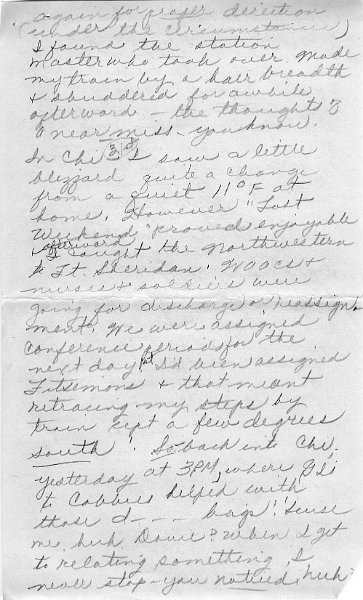 again for proper direction
(under the circumstances)
I found the station
master who took over. Made
my train by a hair breadth
& shuddered for awhile
afterward - the thought of
a near miss - you know.
In Chi 3 I saw a little
blizzard quite a change
from a quiet 11°F at
home. However "Lost
Weekend" proved enjoyable
afterward I caught the Northwestern
to Ft. Sheridan. WAACS &
nurses & soldiers were
going for discharge or reassign-
ment. We were assigned
conference periods for the
next day. I'd been assigned
Fitsemons & that meant
retracing my steps by
train cept a few degrees
south! So back into Chi.
yesterday at 3PM, where GI's
to Cabbies helped with
those d--- bags! 'Scuse
me, huh Dovie? When I get
to relating something, I
never stop - you noticed, huh?